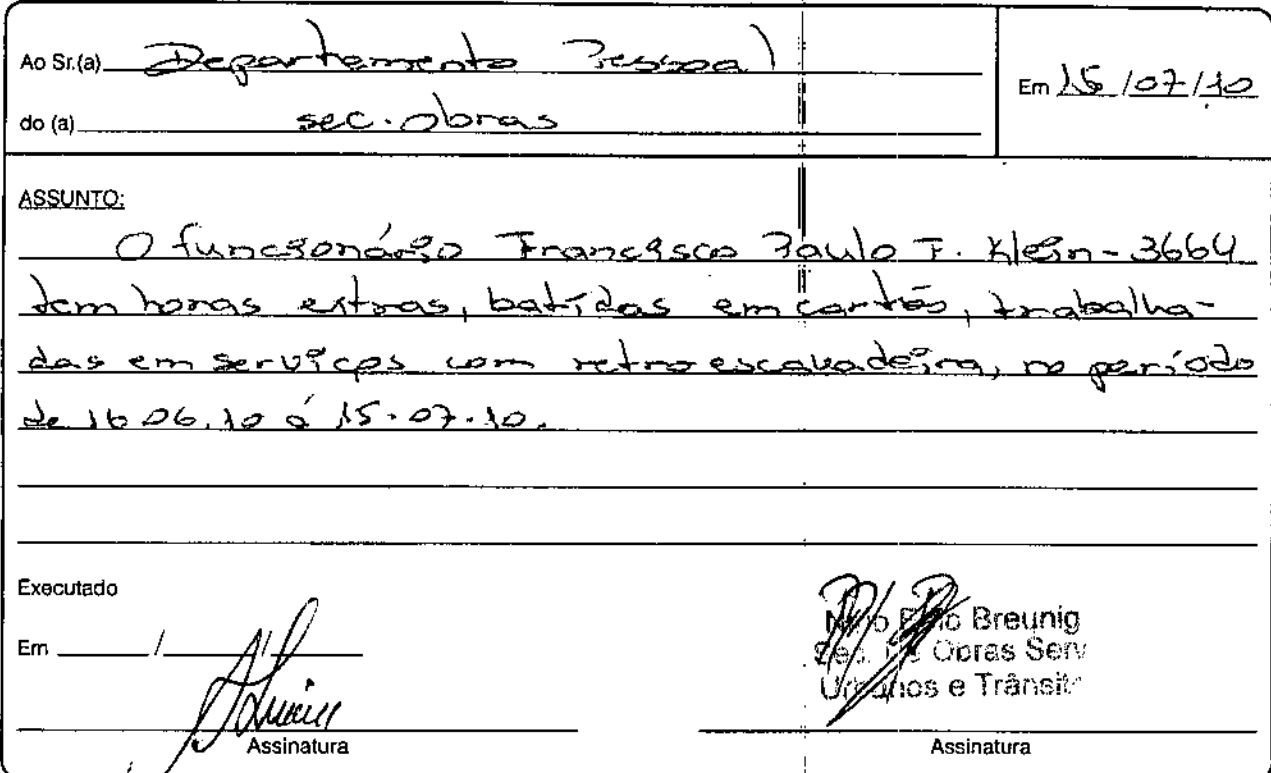 Ao Sr.(a) Departamento Pessoal
Em 15/07/10
do (a) sec. obras
ASSUNTO:
O funcionário Francisco Paulo F. Klein - 3664
tem horas extras, batidas em cartão, trabalha-
das em serviços com retroescavadeira, no período
de 16.06.10 á 15.07.10.
Executado
Em / /
Breunig
Sec. De Obras Serv
Urbanos e Trânsit
Assinatura
Assinatura